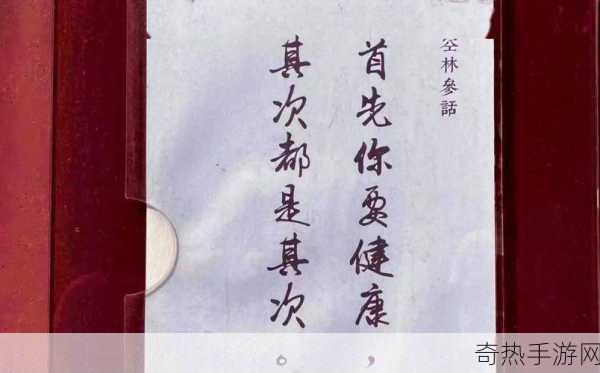 空林參話
首先你要健康，
其次都是其次。
奇热手游网